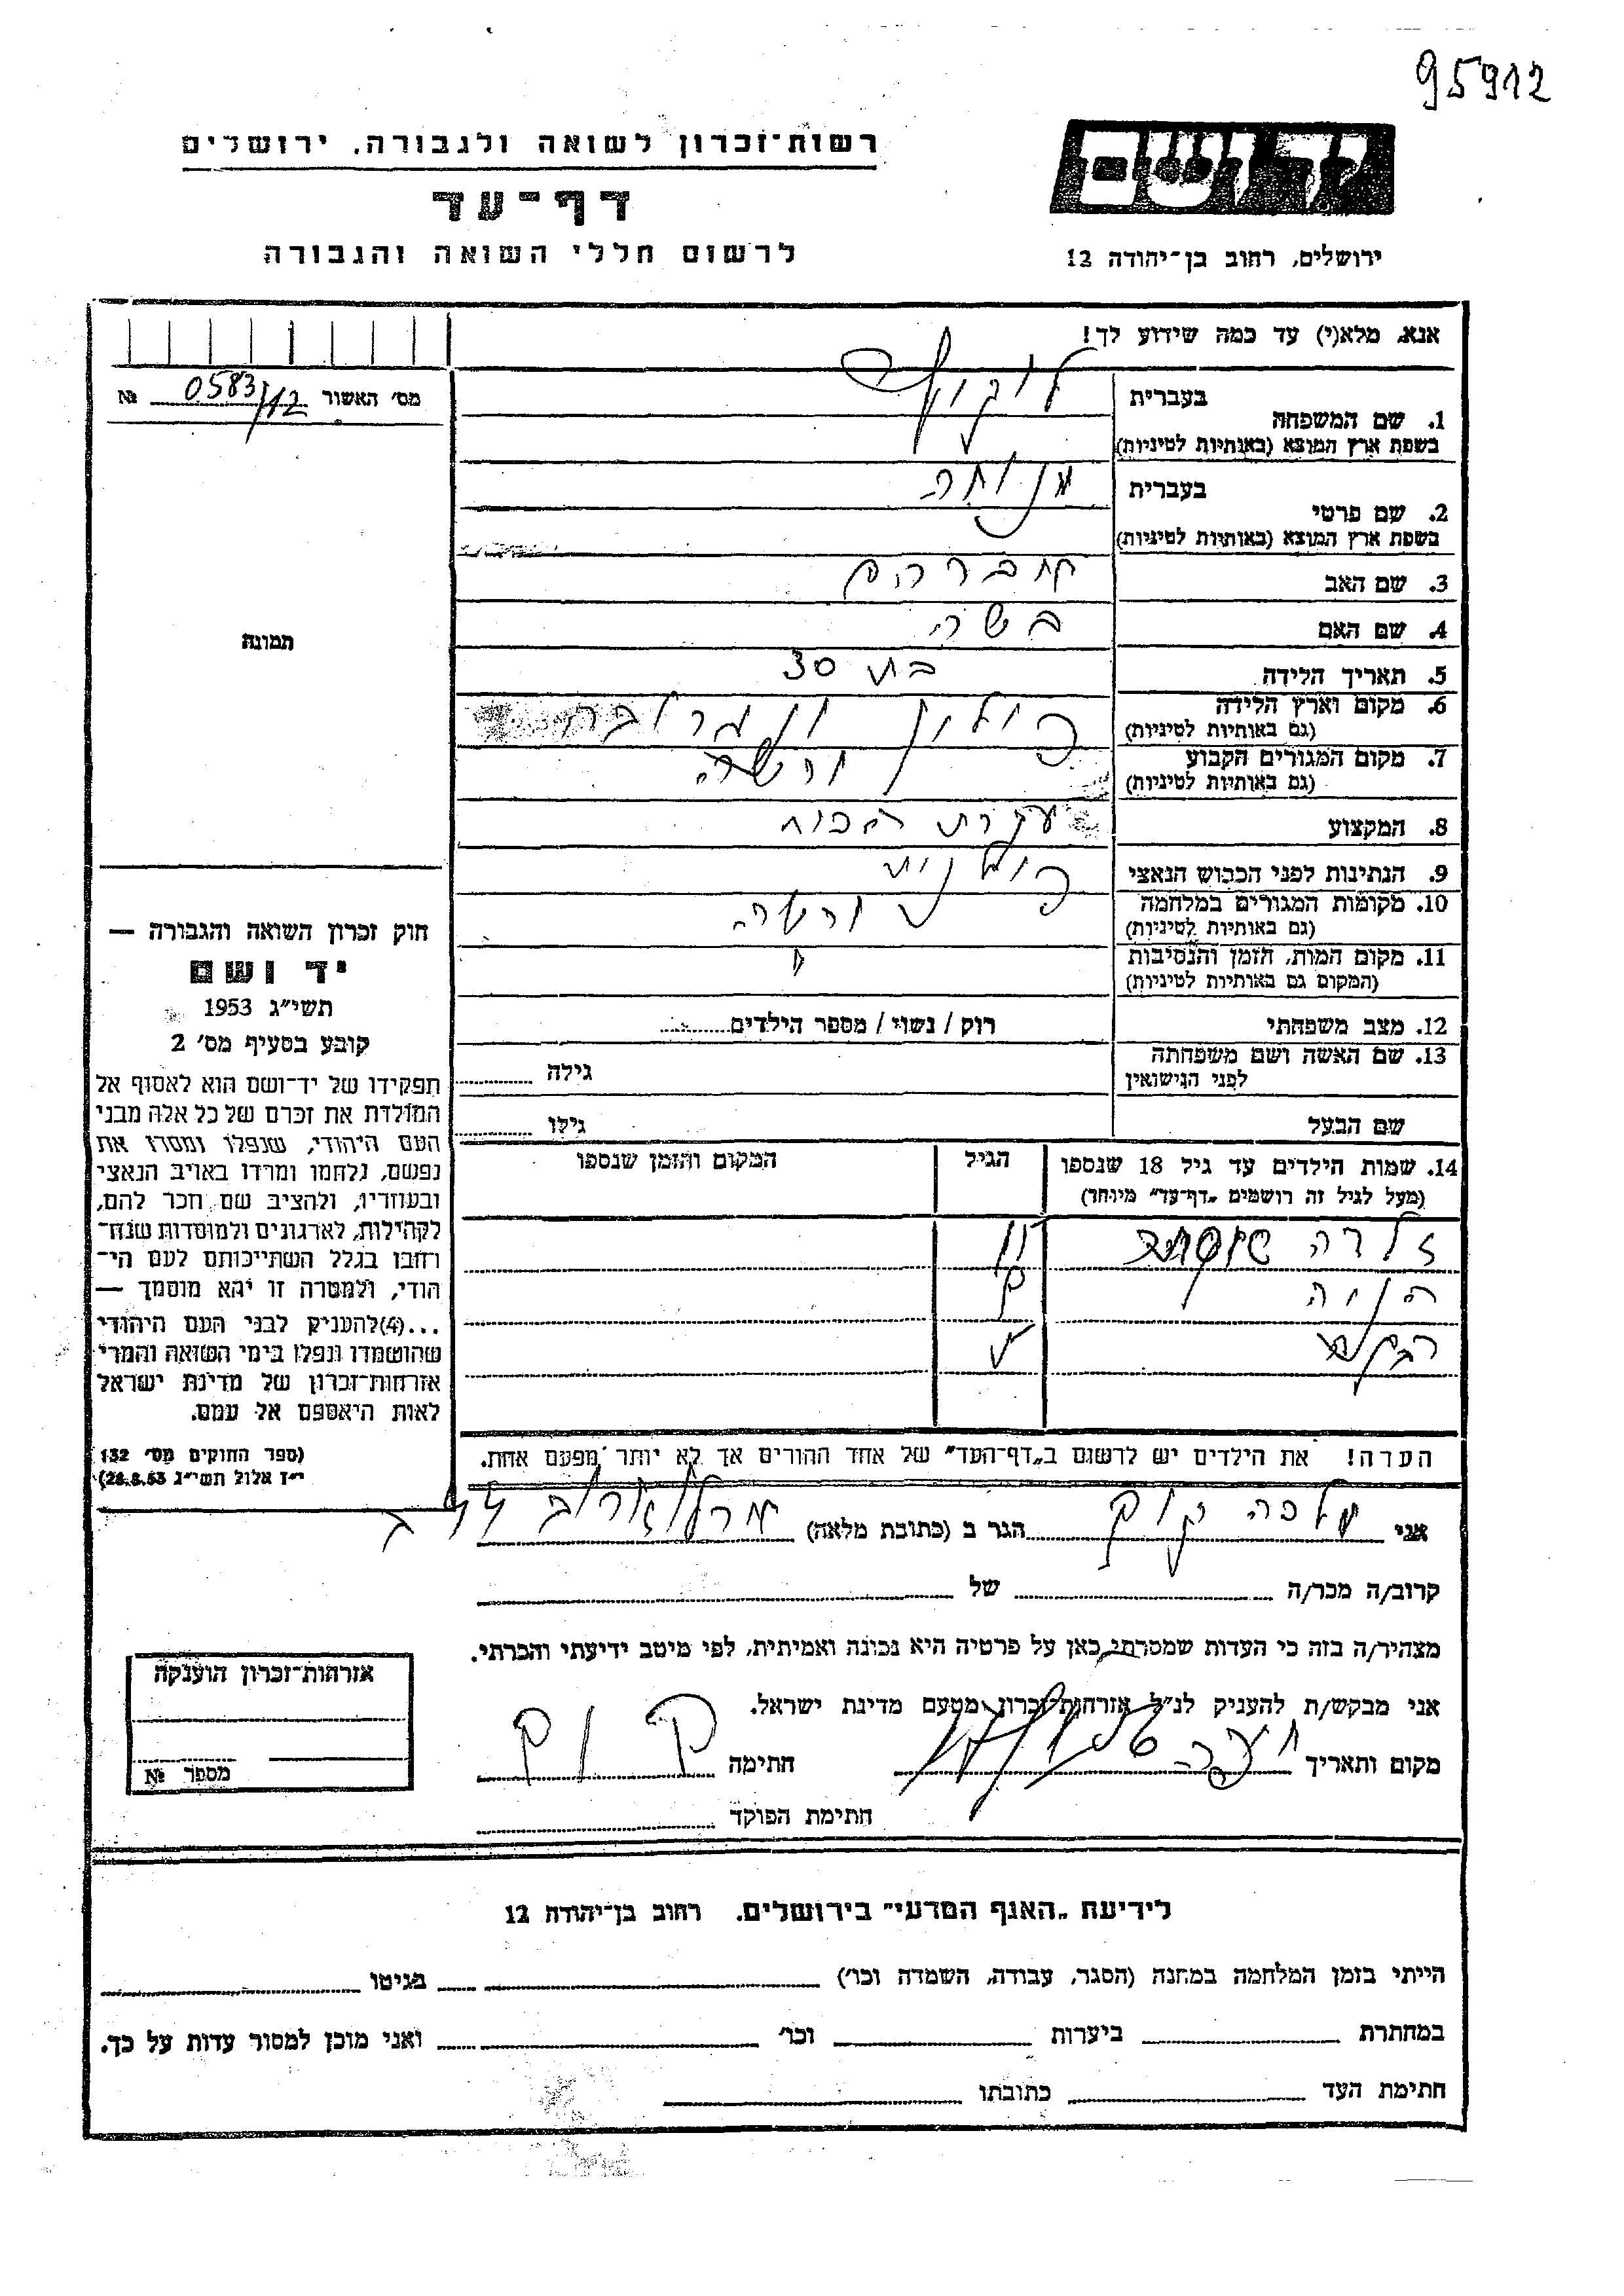 95912
יד ושם
רשות־זכרון לשואה ולגבורה, ירושלים
דף־עד
לרשום חללי השואה והגבורה
ירושלים, רחוב בן־יהודה 12
אנא, מלא(י) עד כמה שידוע לך!
מס׳ האשור 0583/12 №
תמונה
1. שם המשפחה בעברית
בשפת ארץ המוצא (באותיות לטיניות)
2. שם פרטי בעברית מנוחה
בשפת ארץ המוצא (באותיות לטיניות)
3. שם האב אברהם
4. שם האם בשה
5. תאריך הלידה בת 30
6. מקום וארץ הלידה פולין
(גם באותיות לטיניות)
7. מקום המגורים הקבוע ורשה
(גם באותיות לטיניות)
8. המקצוע עקרת הבית
9. הנתינות לפני הכבוש הנאצי פולנית
10. מקומות המגורים במלחמה ורשה
(גם באותיות לטיניות)
11. מקום המות, הזמן והנסיבות "
(המקום גם באותיות לטיניות)
12. מצב משפחתי רוק / נשוי / מספר הילדים
13. שם האשה ושם משפחתה גילה
לפני הנישואין
שם הבעל גילו
14. שמות הילדים עד גיל 18 שנספו הגיל המקום והזמן שנספו
(מעל לגיל זה רושמים „דף־עד" מיוחד)
חנה
רבקה
הערה! את הילדים יש לרשום ב„דף־העד" של אחד ההורים אך לא יותר מפעם אחת.
חוק זכרון השואה והגבורה —
יד ושם
תשי״ג 1953
קובע בסעיף מס׳ 2
תפקידו של יד־ושם הוא לאסוף אל
המולדת את זכרם של כל אלה מבני
העם היהודי, שנפלו ומסרו את
נפשם, נלחמו ומרדו באויב הנאצי
ובעוזריו, ולהציב שם וזכר להם,
לקהילות, לארגונים ולמוסדות שנח־
רחבו בגלל השתייכותם לעם הי־
הודי, ולמטרה זו יהא מוסמך —
...(4)להעניק לבני העם היהודי
שהושמדו ונפלו בימי השואה והמרי
אזרחות־זכרון של מדינת ישראל
לאות היאספם אל עמם.
(ספר החוקים מס׳ 132
י״ז אלול תשי״ג 28.8.53)
אני מלכה קופ הגר ב (כתובת מלאה)
קרוב/ה מכר/ה של
מצהיר/ה בזה כי העדות שמסרתי כאן על פרטיה היא נכונה ואמיתית, לפי מיטב ידיעתי והכרתי.
אני מבקש/ת להעניק לנ״ל אזרחות־זכרון מטעם מדינת ישראל.
מקום ותאריך חיפה חתימה קופ
חתימת הפוקד
אזרחות־זכרון הוענקה
מספר №
לידיעת „האגף המדעי" בירושלים. רחוב בן־יהודה 12
הייתי בזמן המלחמה במחנה (הסגר, עבודה, השמדה וכו׳) בגיטו
במחתרת ביערות וכו׳ ואני מוכן למסור עדות על כך.
חתימת העד כתובתו